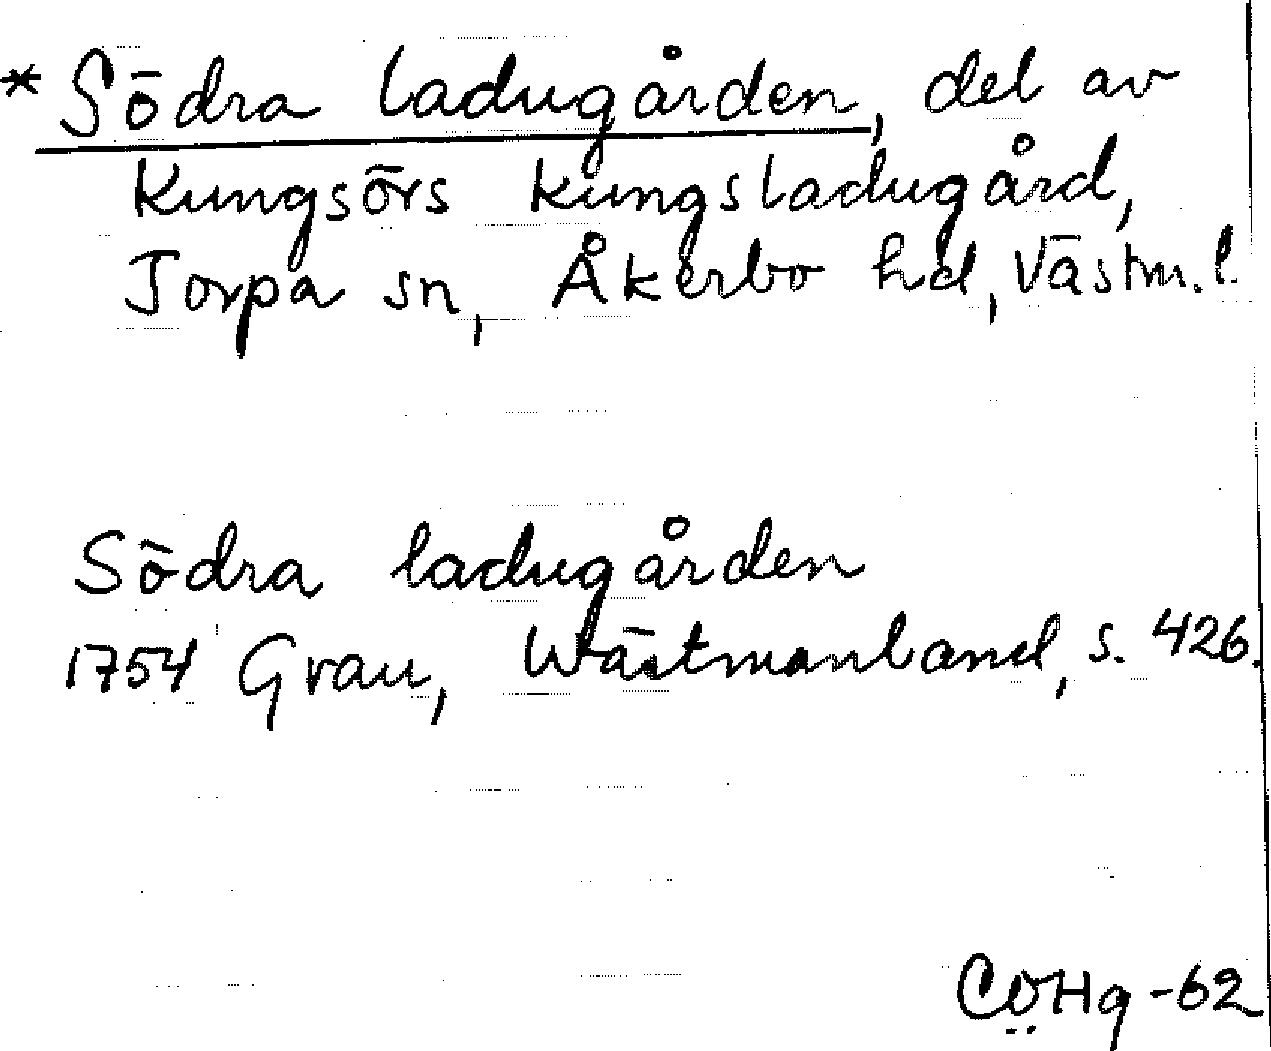 * Södra ladugården, del av
Kungsörs kungsladugård,
Torpa sn, Åkerbo hd, Västm. l.
Södra ladugården
1754 Grau, Wästmanland, s. 426.
CÖHg -62